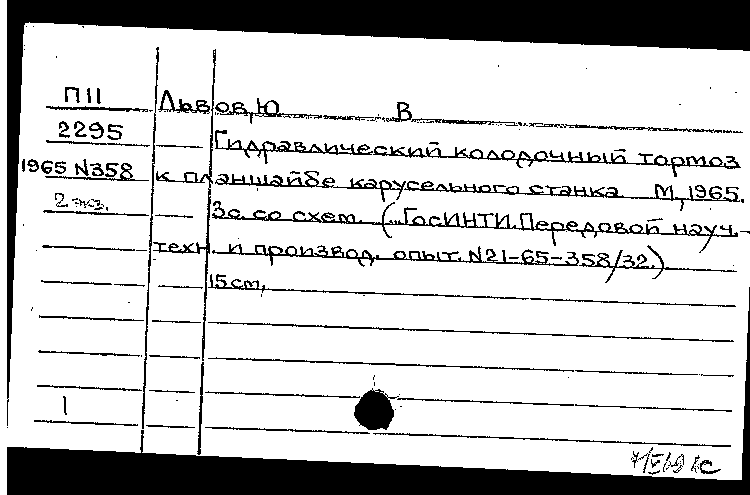 П11 Львов, Ю В
2295 Гидравлический колодочный тормоз
1965 N358 к планшайбе карусельного станка М, 1965.
2 экз. 3с. со схем. (...ГосИНТИ. Передовой науч.-
техн. и производ. опыт. N21-65-358/32.)
15 cm,
1